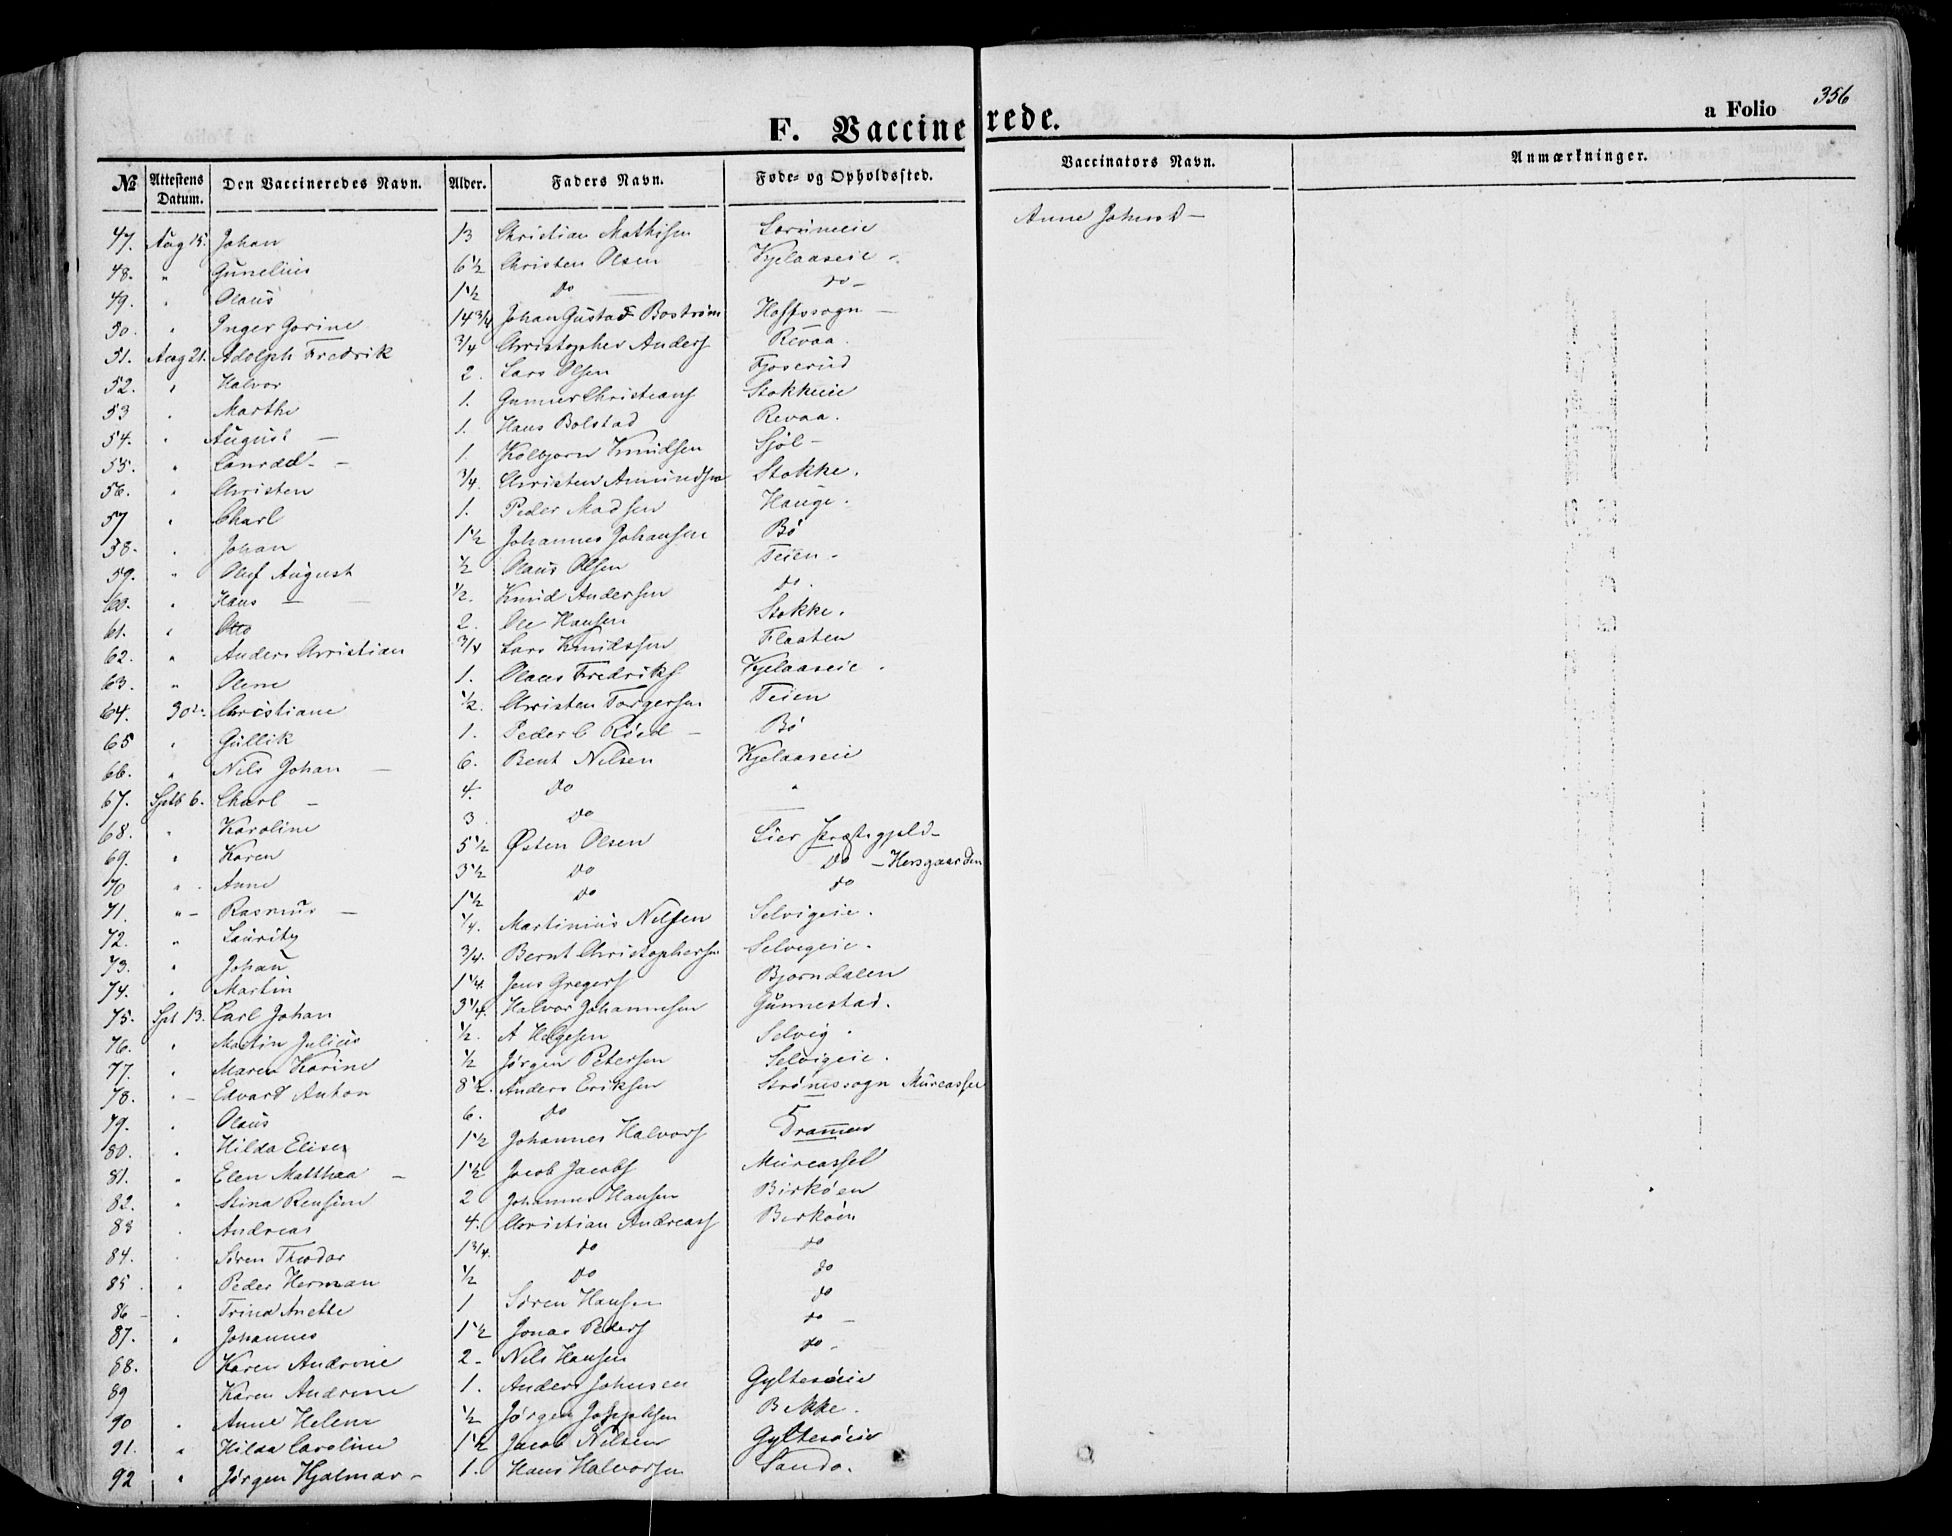 356
F. Vaccinerede.
a Folio
No Attestens Datum. Den Vaccineredes Navn. Alder. Faders Navn. Føde- og Opholdssted. Vaccinators Navn. Anmærkninger.
47. Aug 15. Johan 13 Christian Mathisen Anne Johnsd -
48. " Gunelius 6 1/2 Christen Olsen Kjelaaseie
49. " Olaus 1 1/2 do do -
50. " Inger Gorine 14 3/4 Johan Gustaf Boström Hoffssogn -
51. Aug 21. Adolph Fredrik 3/4 Christopher Anders Revaa.
52. " Halvor 2. Lars Olsen Fjoserud
53 " Marthe 1. Gunner Christians Stokkeie
54. " August - 1. Hans Bolstad Revaa.
55. " Conrad - 1. Kolbjørn Knudsen Sjöl -
56. " Christen 3/4. Christen Amundsen Stokke.
57 " Charl 1. Peder Madsen Hauge.
58. " Johan 1 1/2 Johannes Johansen Bö
59. " Oluf August 1/2 Olaus Olsen Teien -
60. " Hans - 1/2. Knud Andersen do.
61. " Otto 2. Ole Hansen Stokke.
62. " Anders Christian 3/4 Lars Knudssen Flaaten
63. " Olene 1. Olaus Fredriks Kjelaaseie.
64. 30. Christiane 1/2. Christen Torgersen Teien
65 " Gullik 1. Peder C Röed - Bö
66. " Nils Johan - 6. Bent Nilsen Kjelaaseie
67. Sptb 6. Charl - 4. do "
68. " Karoline 3. do
69. " Karen 5 1/2 Østen Olsen Lier Præstegjeld -
70 " Anne 3 1/2 do do - Horsgaarden
71. " - Rasmus - 1 1/2 do do
72. " Lauritz 1/4. Martinius Nilsen Selvigeie.
73. " Johan 3/4. Bernt Christophersen Selvigeie.
74. " Martin 1 1/4. Jens Gregers Bjorndalen
75. Spt 13. Carl Johan 3 1/4. Halvor Johannesen Gunnestad.
76. " Martin Julius 1/2. A Helgesen Selvig.
77. " Maren Karine 1/2 Jörgen Petersen Selvigeie.
78. " - Edvard Anton 8 1/2. Anders Eriksen Strömssogn Mureassen
79. " Olaus 6. do
80. " Hilda Elise 1 1/2 Johannes Halvors Dramen
81. " Elen Matthea - 1 1/2 Jacob Jacobs Mureassel
82. " Stina 2 Johannes Hansen Birköen
83 " Andreas 4. Christian Andreass Birköen
84. " Sören Theodor 1 3/4. do do
85 " Peder Herman 1/2 do do
86 - " Trina Anette 1 Sören Hansen do
87. " Johannes 1 1/2 Jonas Peders do -
88. Karen Andrine 2 - Nils Hansen do -
89 Karen Andrine 1. Anders Johnsen Gyltesöeie
90 " Anne Helene 1/2 Jörgen Josephsen Bekke.
91. " Hilda Caroline 1 1/2 Jacob Nilsen Gyltesöeie
92 " Jörgen Hjalmar - 1. Hans Halvorsen Sando.